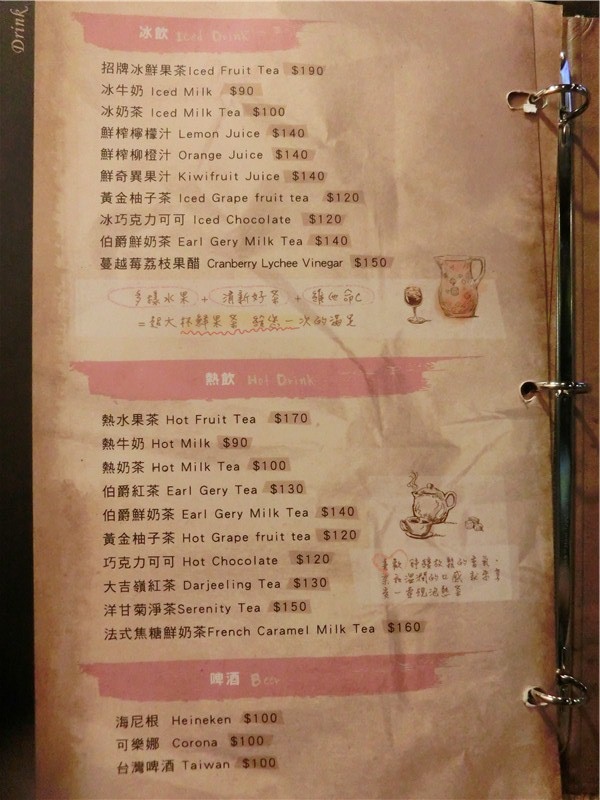 Drink
冰飲 Iced Drink
招牌冰鮮果茶Iced Fruit Tea $190
冰牛奶 Iced Milk $90
冰奶茶 Iced Milk Tea $100
鮮榨檸檬汁 Lemon Juice $140
鮮榨柳橙汁 Orange Juice $140
鮮奇異果汁 Kiwifruit Juice $140
黃金柚子茶 Iced Grape fruit tea $120
冰巧克力可可 Iced Chocolate $120
伯爵鮮奶茶 Earl Gery Milk Tea $140
蔓越莓荔枝果醋 Cranberry Lychee Vinegar $150
多樣水果 + 清新好茶 + 維他命C
=超大杯鮮果茶 一次的滿足
熱飲 Hot Drink
熱水果茶 Hot Fruit Tea $170
熱牛奶 Hot Milk $90
熱奶茶 Hot Milk Tea $100
伯爵紅茶 Earl Gery Tea $130
伯爵鮮奶茶 Earl Gery Milk Tea $140
黃金柚子茶 Hot Grape fruit tea $120
巧克力可可 Hot Chocolate $120
大吉嶺紅茶 Darjeeling Tea $130
洋甘菊淨茶Serenity Tea $150
法式焦糖鮮奶茶French Caramel Milk Tea $160
啤酒 Beer
海尼根 Heineken $100
可樂娜 Corona $100
台灣啤酒 Taiwan $100